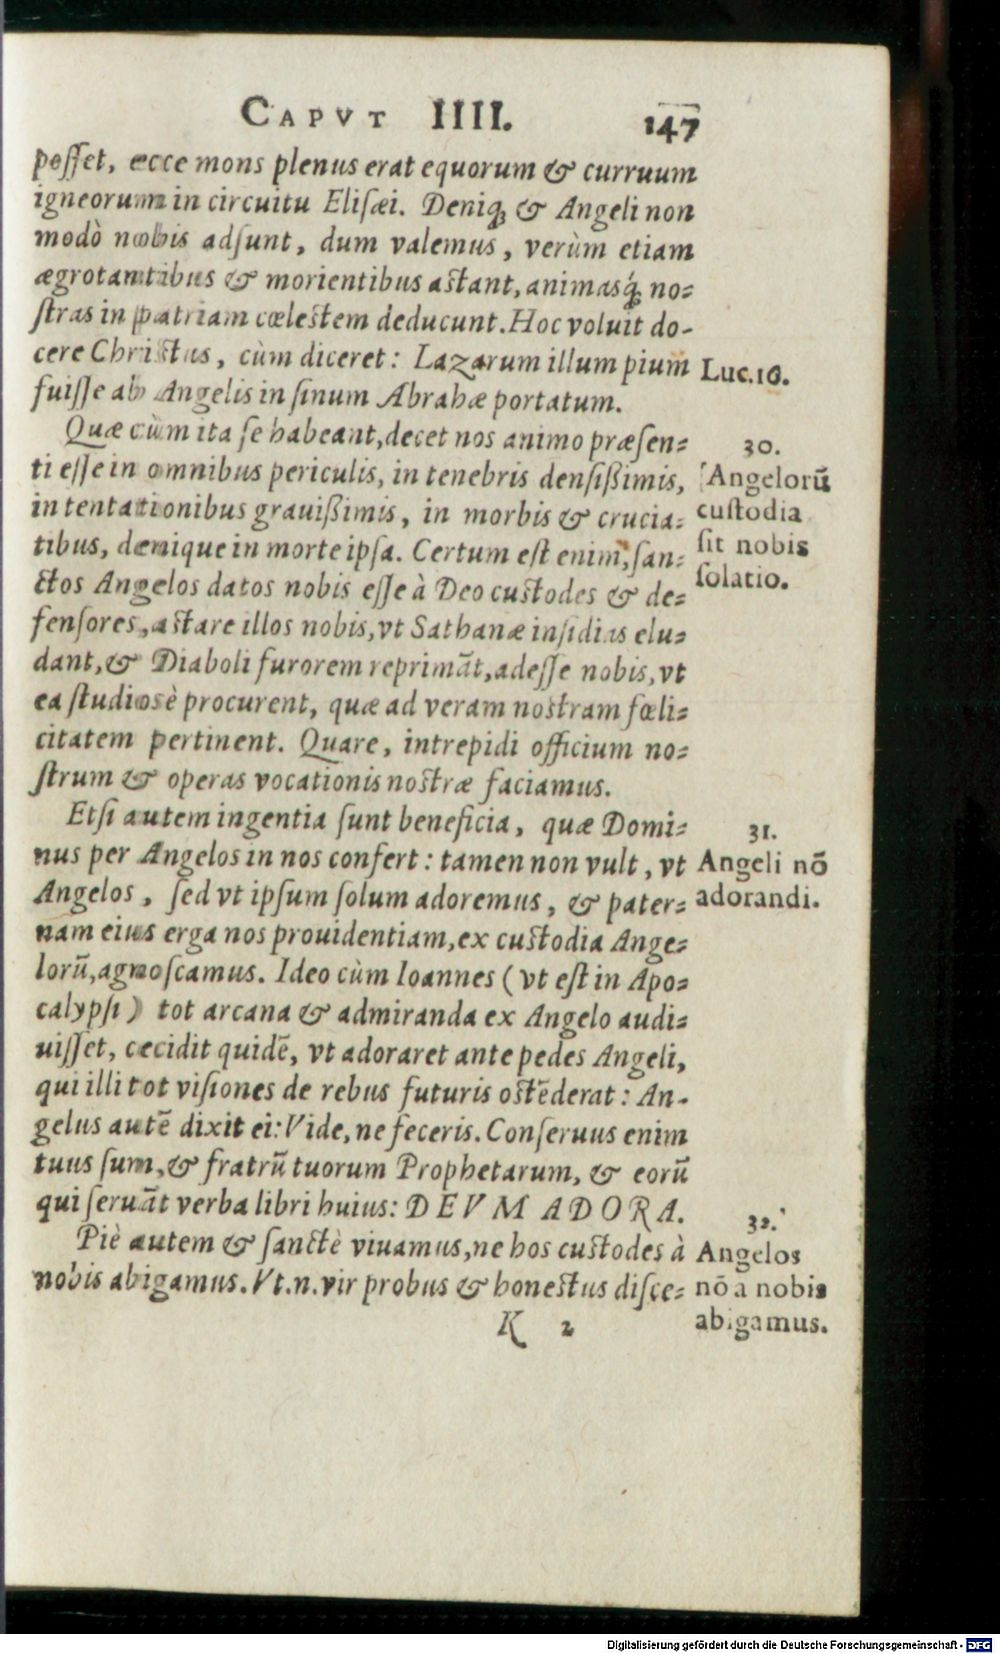 CAPVT IIII. 147
posset, ecce mons plenus erat equorum & curruum
igneorum in circuitu Elisæi. Deniq; & Angeli non
modò nobis adsunt, dum valemus, verùm etiam
ægrotantibus & morientibus astant, animasq́; no=
stras in patriam cœlestem deducunt. Hoc voluit do-
cere Christus, cùm diceret: Lazarum illum pium
Luc.16.
fuisse ab Angelis in sinum Abrahæ portatum.
Quæ cùm ita se habeant, decet nos animo præsen=
30.
ti esse in omnibus periculis, in tenebris densißimis,
Angelorũ
in tentationibus grauißimis, in morbis & crucia=
custodia
tibus, denique in morte ipsa. Certum est enim, san=
sit nobis
ctos Angelos datos nobis esse à Deo custodes & de=
solatio.
fensores, astare illos nobis, vt Sathanæ insidias elu=
dant, & Diaboli furorem reprimãt, adesse nobis, vt
ea studiosè procurent, quæ ad veram nostram fœli=
citatem pertinent. Quare, intrepidi officium no=
strum & operas vocationis nostræ faciamus.
Etsi autem ingentia sunt beneficia, quæ Domi=
31.
nus per Angelos in nos confert: tamen non vult, vt
Angeli nõ
Angelos, sed vt ipsum solum adoremus, & pater=
adorandi.
nam eius erga nos prouidentiam, ex custodia Ange=
lorũ, agnoscamus. Ideo cùm Ioannes (vt est in Apo=
calypsi) tot arcana & admiranda ex Angelo audi=
uisset, cecidit quidẽ, vt adoraret ante pedes Angeli,
qui illi tot visiones de rebus futuris ostẽderat: An-
gelus autẽ dixit ei: Vide, ne feceris. Conseruus enim
tuus sum, & fratrũ tuorum Prophetarum, & eorũ
qui seruãt verba libri huius: DEVM ADORA.
32.
Piè autem & sanctè viuamus, ne hos custodes à
Angelos
nobis abigamus. Vt.n. vir probus & honestus disce=
nõ a nobis
abigamus.
K 2
Digitalisierung gefördert durch die Deutsche Forschungsgemeinschaft - DFG